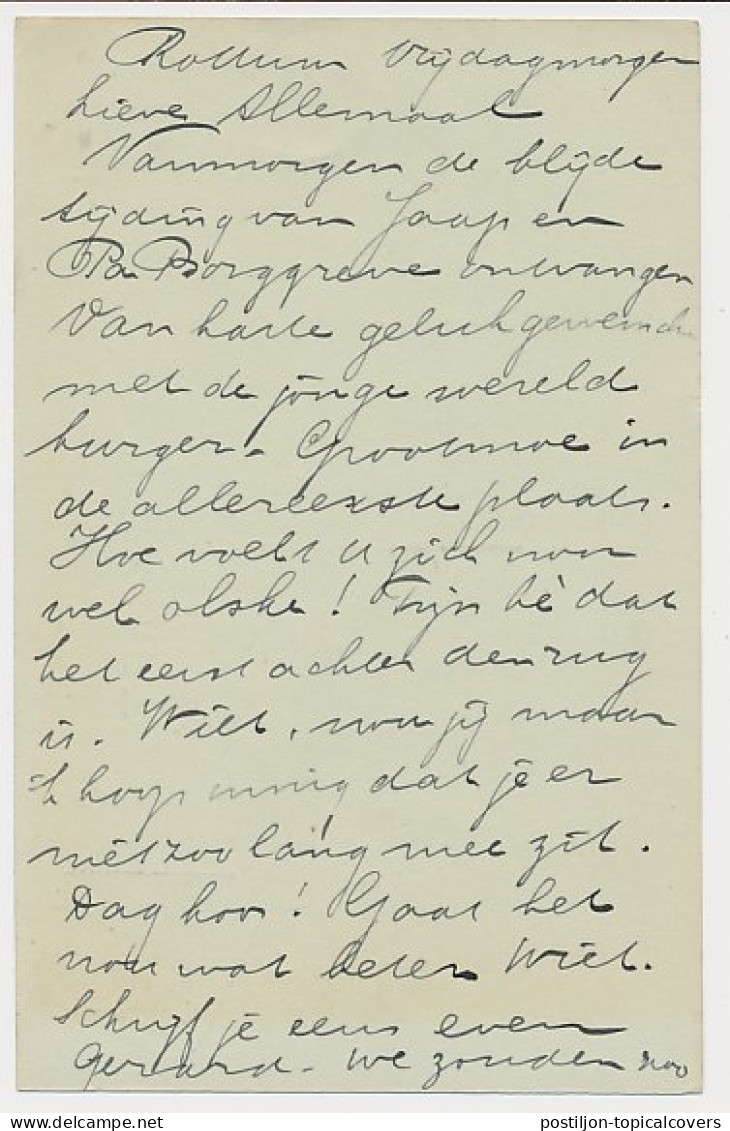 Rottum Vrijdagmorgen
Lieve Allemaal
Vanmorgen de blijde
tijding van Jaap en
Pa Borggreve ontvangen
Van harte geluk gewensch
met de jonge wereld
burger. Grootmoe in
de allereerste plaats.
Hoe voelt u zich nou
wel olske! Fijn hè dat
het eerst achter den rug
is. Wiet, nou jij maar
'k hoop innig dat je er
niet zoo lang mee zit.
Dag hoor! Gaat het
nou wat beter Wiet.
Schrijf je eens even
Gerard. We zouden zoo
postiljon-topicalcovers